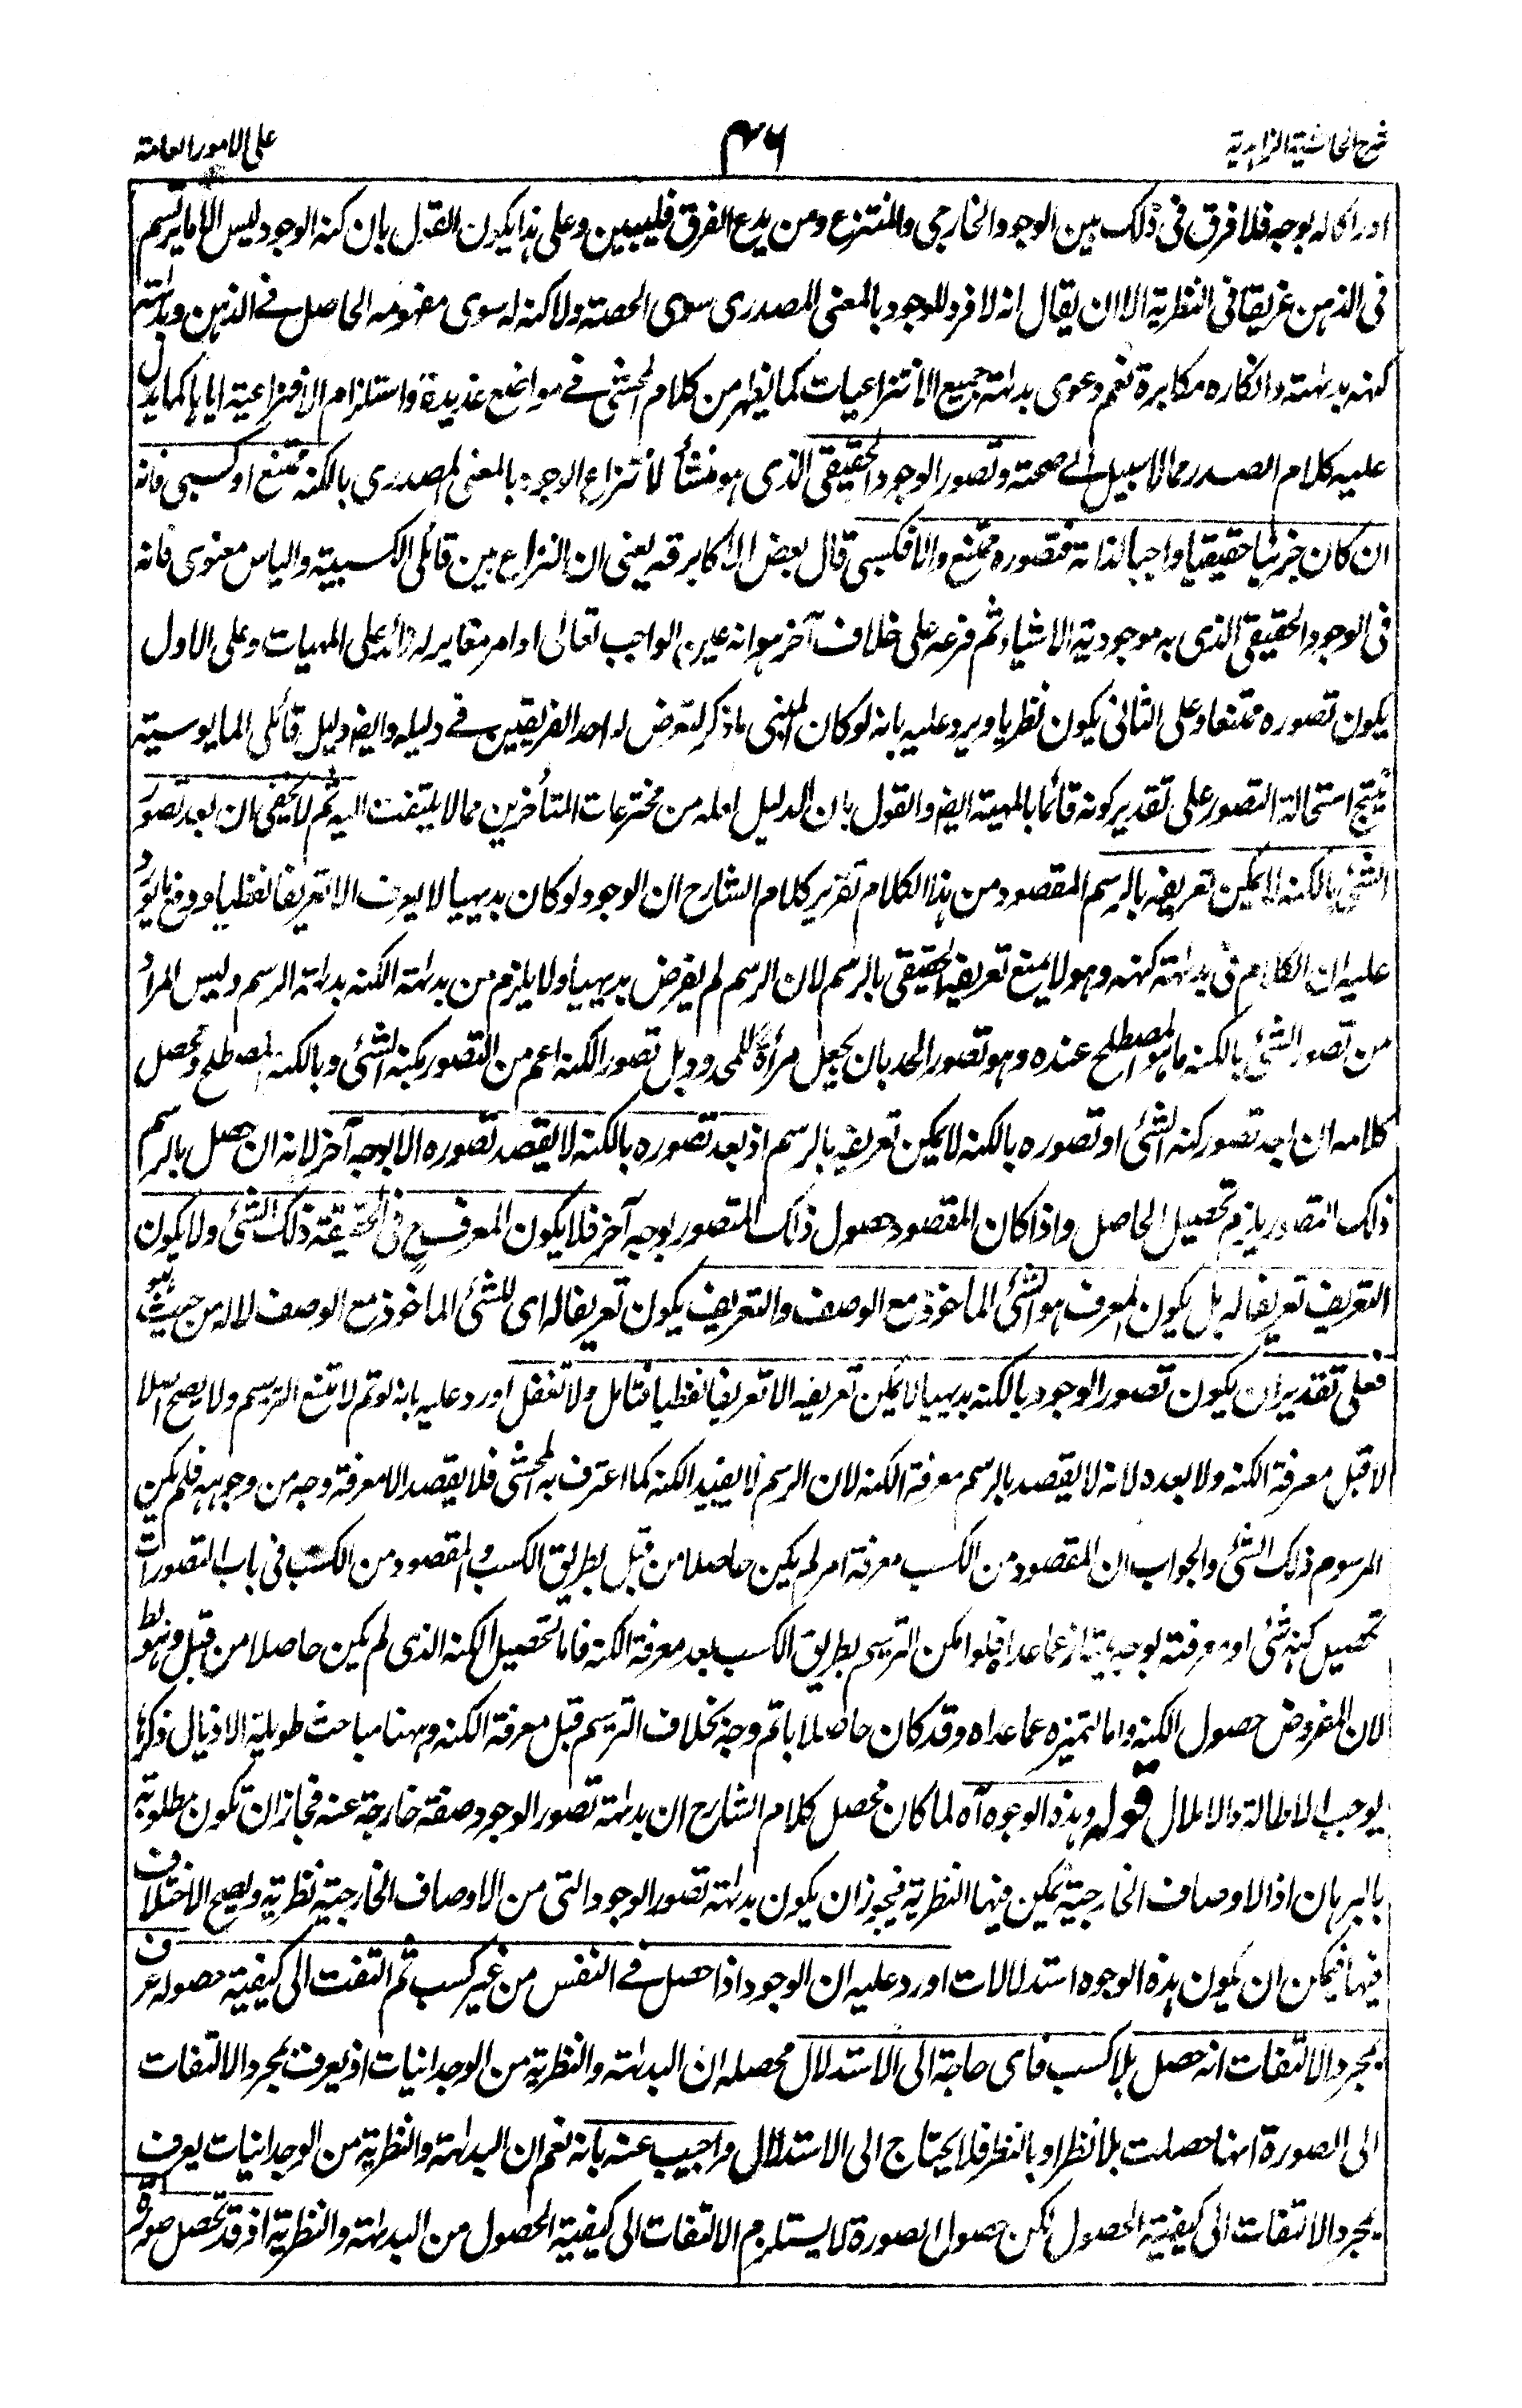 شرح الحاشية الزاهدية
٤٦
على الامور العامة
ادراكا له بوجه فلا فرق فى ذلك بين الوجود الخارجى والمنتزع ومن يدع الفرق فليبين وعلى هذا يكون القول بان كنه الوجود ليس الا ما يرتسم
فى الذهن غريقا فى النظرية الا ان يقال انه لا فرد للوجود بالمعنى المصدرى سوى الحصة ولا كنه له سوى مفهومه الحاصل فى الذهن وبداهة
كنهه بديهة وانكاره مكابرة نعم دعوى بداهة جميع الانتزاعيات كما يظهر من كلام المحشى فى مواضع عديدة واستلزام الانتزاعية اياها كما يدل
عليه كلام الصدر مما لا سبيل الى صحته وتصور الوجود الحقيقى الذى هو منشأ لانتزاع الوجود بالمعنى المصدرى بالكنه ممتنع او كسبى فانه
ان كان جزئيا حقيقيا واجبا لذاته فتصوره ممتنع والا فكسبى قال بعض الاكابر قه يعنى ان النزاع بين قائلى الكسبية والياس معنوى فانه
فى الوجود الحقيقى الذى به موجودية الاشياء ثم فرعه على خلاف آخر هو انه عين الواجب تعالى او امر مغاير له زائد على المهيات وعلى الاول
يكون تصوره ممتنعا وعلى الثانى يكون نظريا ويرد عليه بانه لو كان المبنى ما ذكر لتعرض له احد الفريقين فى دليله وايضا دليل قائلى المايوسية
ينتج استحالة التصور على تقدير كونه قائما بالمهية ايضا والقول بان الدليل لعله من مخترعات المتأخرين مما لا يلتفت اليه ثم لا يخفى ان بعد تصور
الشئ بالكنه لا يمكن تعريفه بالرسم المقصود من هذا الكلام تقرير كلام الشارح ان الوجود لو كان بديهيا لا يعرف الا تعريفا لفظيا ودفع ما يورد
عليه ان الكلام فى بداهة كنهه وهو لا يمنع تعريفه الحقيقى بالرسم لان الرسم لم يفرض بديهيا ولا يلزم من بداهة الكنه بداهة الرسم وليس المراد
من تصور الشئ بالكنه ما هو المصطلح عنده وهو تصور الحد بان يجعل مرأة للمحدود بل تصور الكنه اعم من التصور بكنه الشئ وبالكنه المصطلح ومحصل
كلامه ان بعد تصور كنه الشئ او تصوره بالكنه لا يمكن تعريفه بالرسم اذ بعد تصوره بالكنه لا يقصد تصوره الا بوجه آخر لانه ان حصل بالرسم
ذلك التصور يلزم تحصيل الحاصل واذا كان المقصود حصول ذلك المتصور بوجه آخر فلا يكون المعرف ح فى الحقيقة ذلك الشئ ولا يكون
التعريف تعريفا له بل يكون المعرف هو الشئ الماخوذ مع الوصف والتعريف يكون تعريفا له اى للشئ الماخوذ مع الوصف لا له من حيث هو
فعلى تقدير ان يكون تصور الوجود بالكنه بديهيا لا يمكن تعريفه الا تعريفا لفظيا فتامل ولا تغفل اورد عليه بانه لو تم لامتنع الترسيم ولا يصح اصلا
لا قبل معرفة الكنه ولا بعده لانه لا يقصد بالرسم معرفة الكنه لان الرسم لا يفيد الكنه كما اعترف به المحشى فلا يقصد الا معرفة وجه من وجوهه فلم يكن
المرسوم ذلك الشئ والجواب ان المقصود من الكسب معرفة امر لم يكن حاصلا من قبل بطريق الكسب والمقصود من الكسب فى باب التصورات
تحصيل كنه شئ او معرفته بوجه يمتاز عما عداه فلو امكن الترسيم بطريق الكسب بعد معرفة الكنه فاما لتحصيل الكنه الذى لم يكن حاصلا من قبل وهو بط
لان المفروض حصول الكنه واما لتميزه عما عداه وقد كان حاصلا باتم وجه بخلاف الترسيم قبل معرفة الكنه وههنا مباحث طويلة الاذيال ذكرها
يوجب الاطالة والاملال قوله وهذه الوجوه آه لما كان محصل كلام الشارح ان بداهة تصور الوجود صفة خارجة عنه فجاز ان تكون مطلوبة
بالبرهان اذ الاوصاف الخارجية يمكن فيها النظرية فيجوز ان يكون بداهة تصور الوجود التى من الاوصاف الخارجية نظرية ويصح الاختلاف
فيها فيمكن ان يكون هذه الوجوه استدلالات اورد عليه ان الوجود اذا حصل فى النفس من غير كسب ثم التفت الى كيفية حصوله عرف
بمجرد الالتفات انه حصل بلا كسب فاى حاجة الى الاستدلال محصله ان البداهة والنظرية من الوجدانيات اذ يعرف بمجرد الالتفات
الى الصورة انها حصلت بلا نظر او بالنظر فلا يحتاج الى الاستدلال واجيب عنه بانه نعم ان البداهة والنظرية من الوجدانيات يعرف
بمجرد الالتفات الى كيفية الحصول لكن حصول الصورة لا يستلزم الالتفات الى كيفية الحصول من البداهة والنظرية اذ قد تحصل صورة